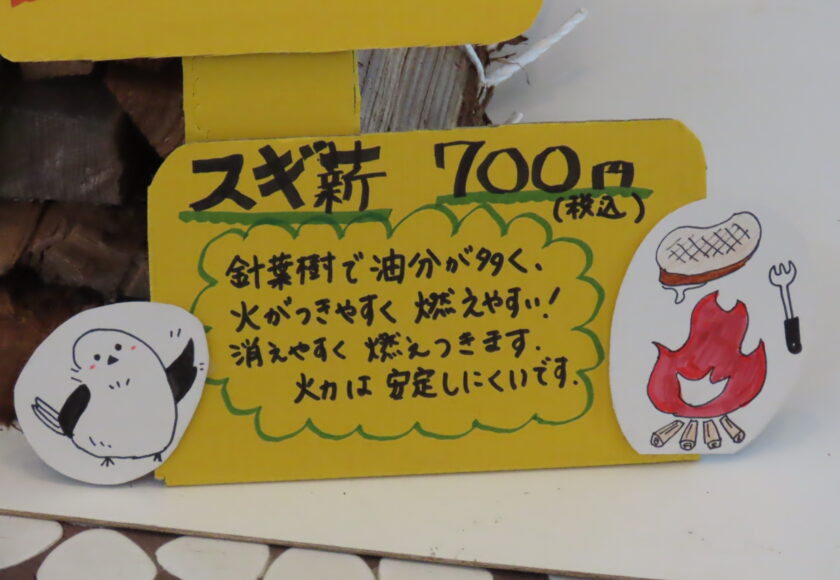 スギ薪 700円
(税込)
針葉樹で油分が多く、
火がつきやすく 燃えやすい!
消えやすく 燃えつきます.
火力は 安定しにくいです.